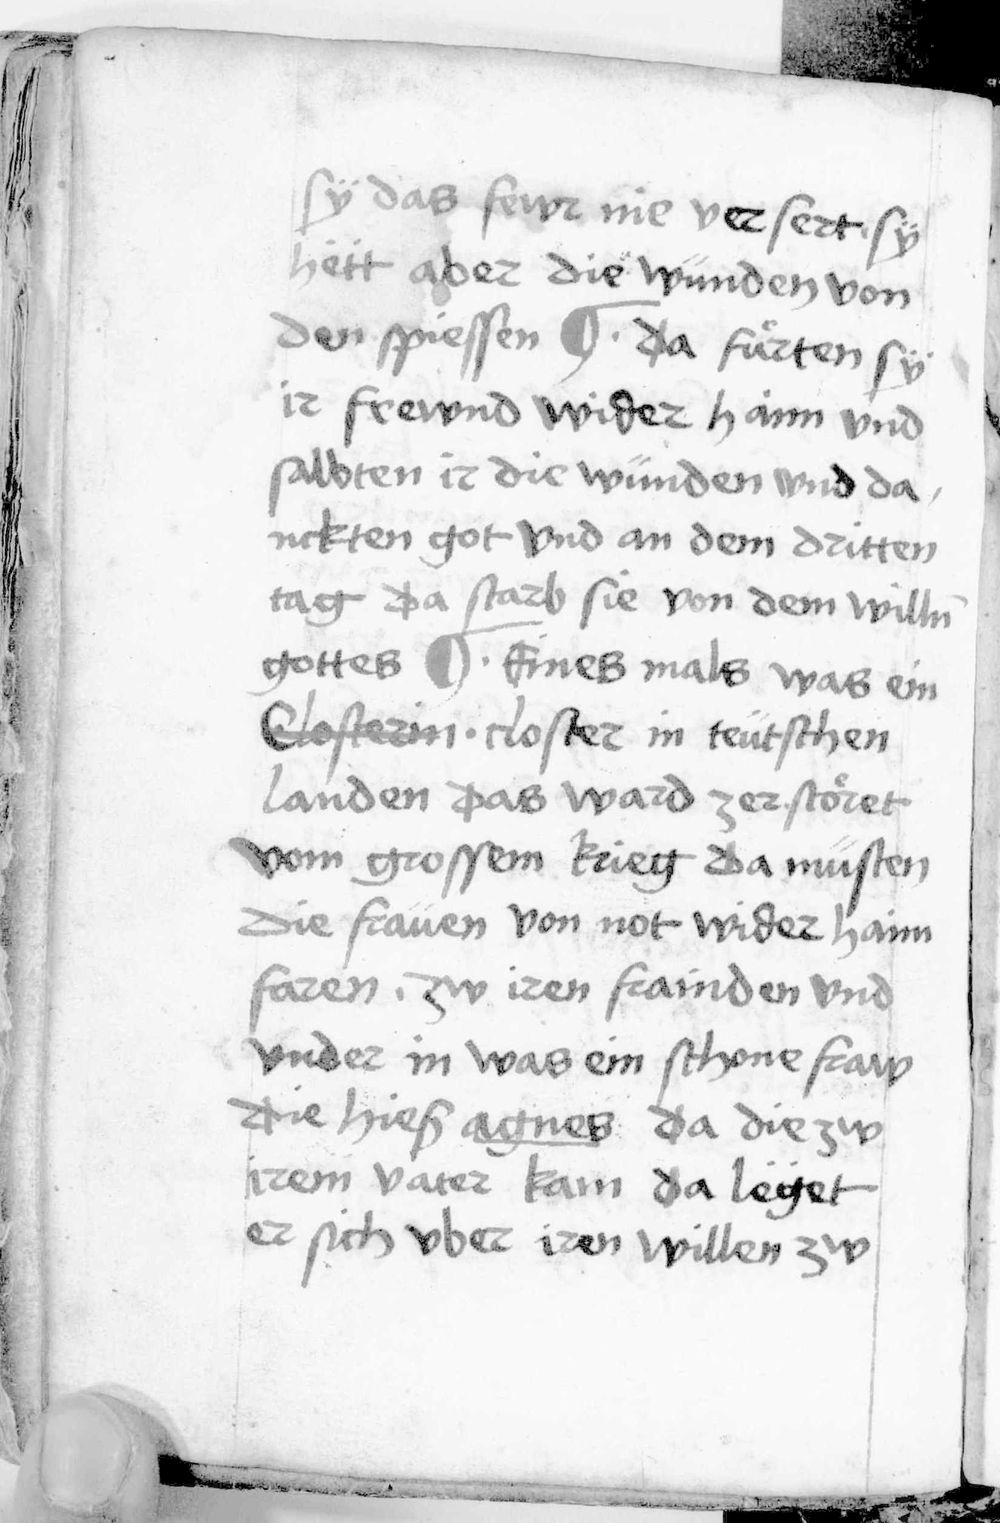 sÿ das fewr nie ver sert. sÿ
hett aber die wunden von
den spiessen ¶. da fürten sÿ
ir frewnd wider haim vnd
salbten ir die wünden vnd da,
nckten got vnd an dem dritten
tag da starb sie von dem willn̄
gottes ¶. Eines mals was ein
Closterin. closter in teütschen
landen das ward zerstöret
vom grossem krieg da müsten
die fraüen von not wider haim
faren. zw iren frainden vnd
vnder in was ein schone fraw
die hieß agnes da die zw
irem vater kam da leget
er sich vber iren willen zw